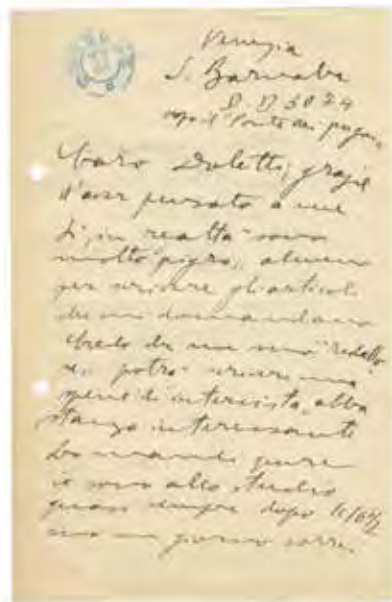 Venezia
S. Barnaba
3074
Ponte dei pugni
Caro Doletti, grazie
d'aver pensato a me
Si, in realtà sono
molto pigro, almeno
per scrivere gli articoli
che mi domandano
Credo che un suo redatto
re, potrà scrivere una
specie di intervista, abba
stanza interessante
Lo mandi pure
io sono allo studio
quasi sempre dopo le
ma un giorno